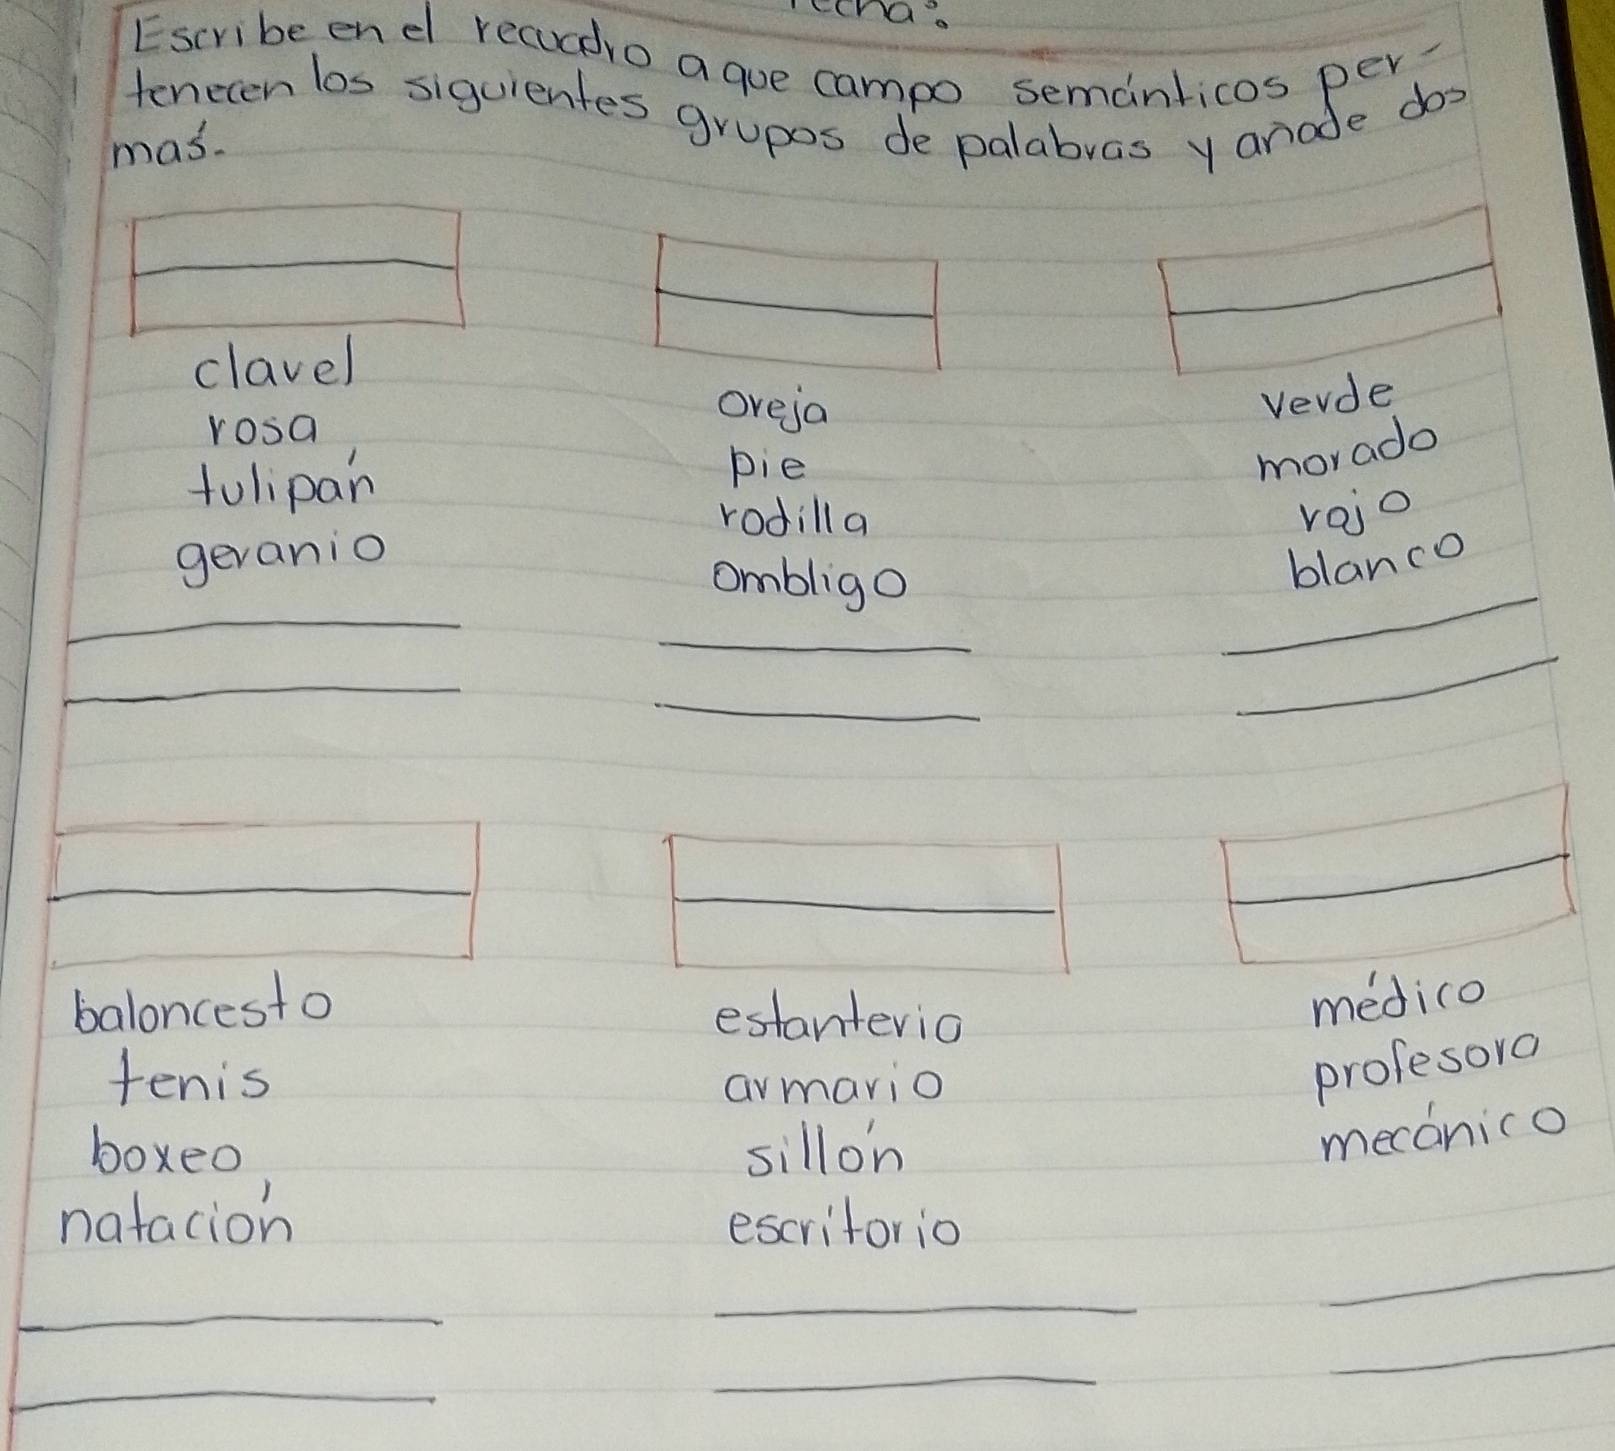 Escribe en el recuadro a que campo semánticos per-
tenecen los siguientes grupos de palabras y añade dos
más.
clavel
rosa
tulipán
geranio
oreja
pie
rodilla
ombligo
verde
morado
rojo
blanco
baloncesto
tenis
boxeo
natación
estanteria
armario
sillón
escritorio
médico
profesora
mecánico